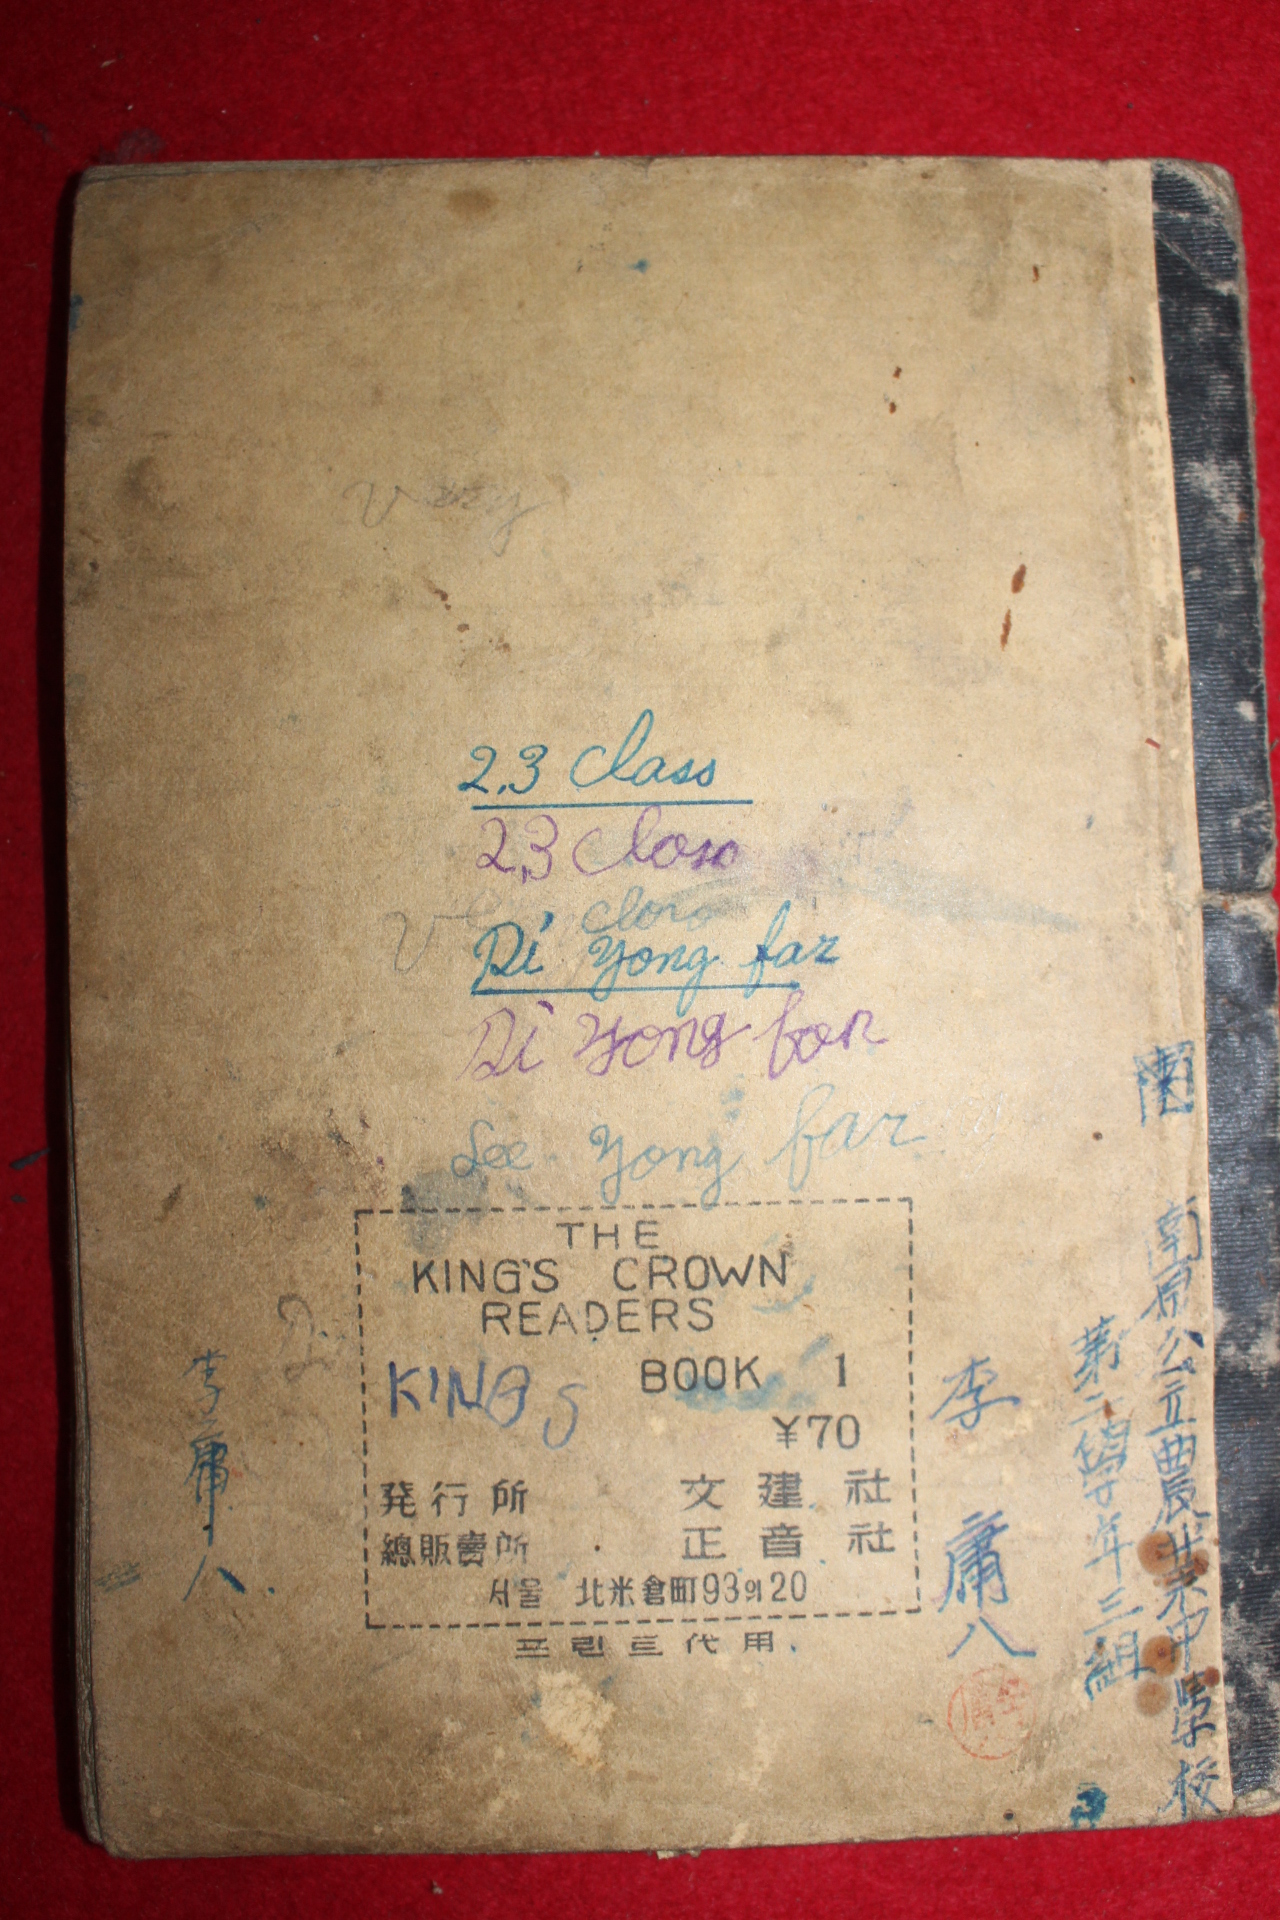 2.3 class
2.3 class
Di Yong far
Di Yong far
See Yong far
THE
KING'S CROWN
READERS
KINGS
BOOK 1
¥70
発行所 文建社
總販賣所 正音社
서울 北米倉町93의20
프린트代用
李庸八
李庸八
第二學年三組
南
南原公立農業中學校